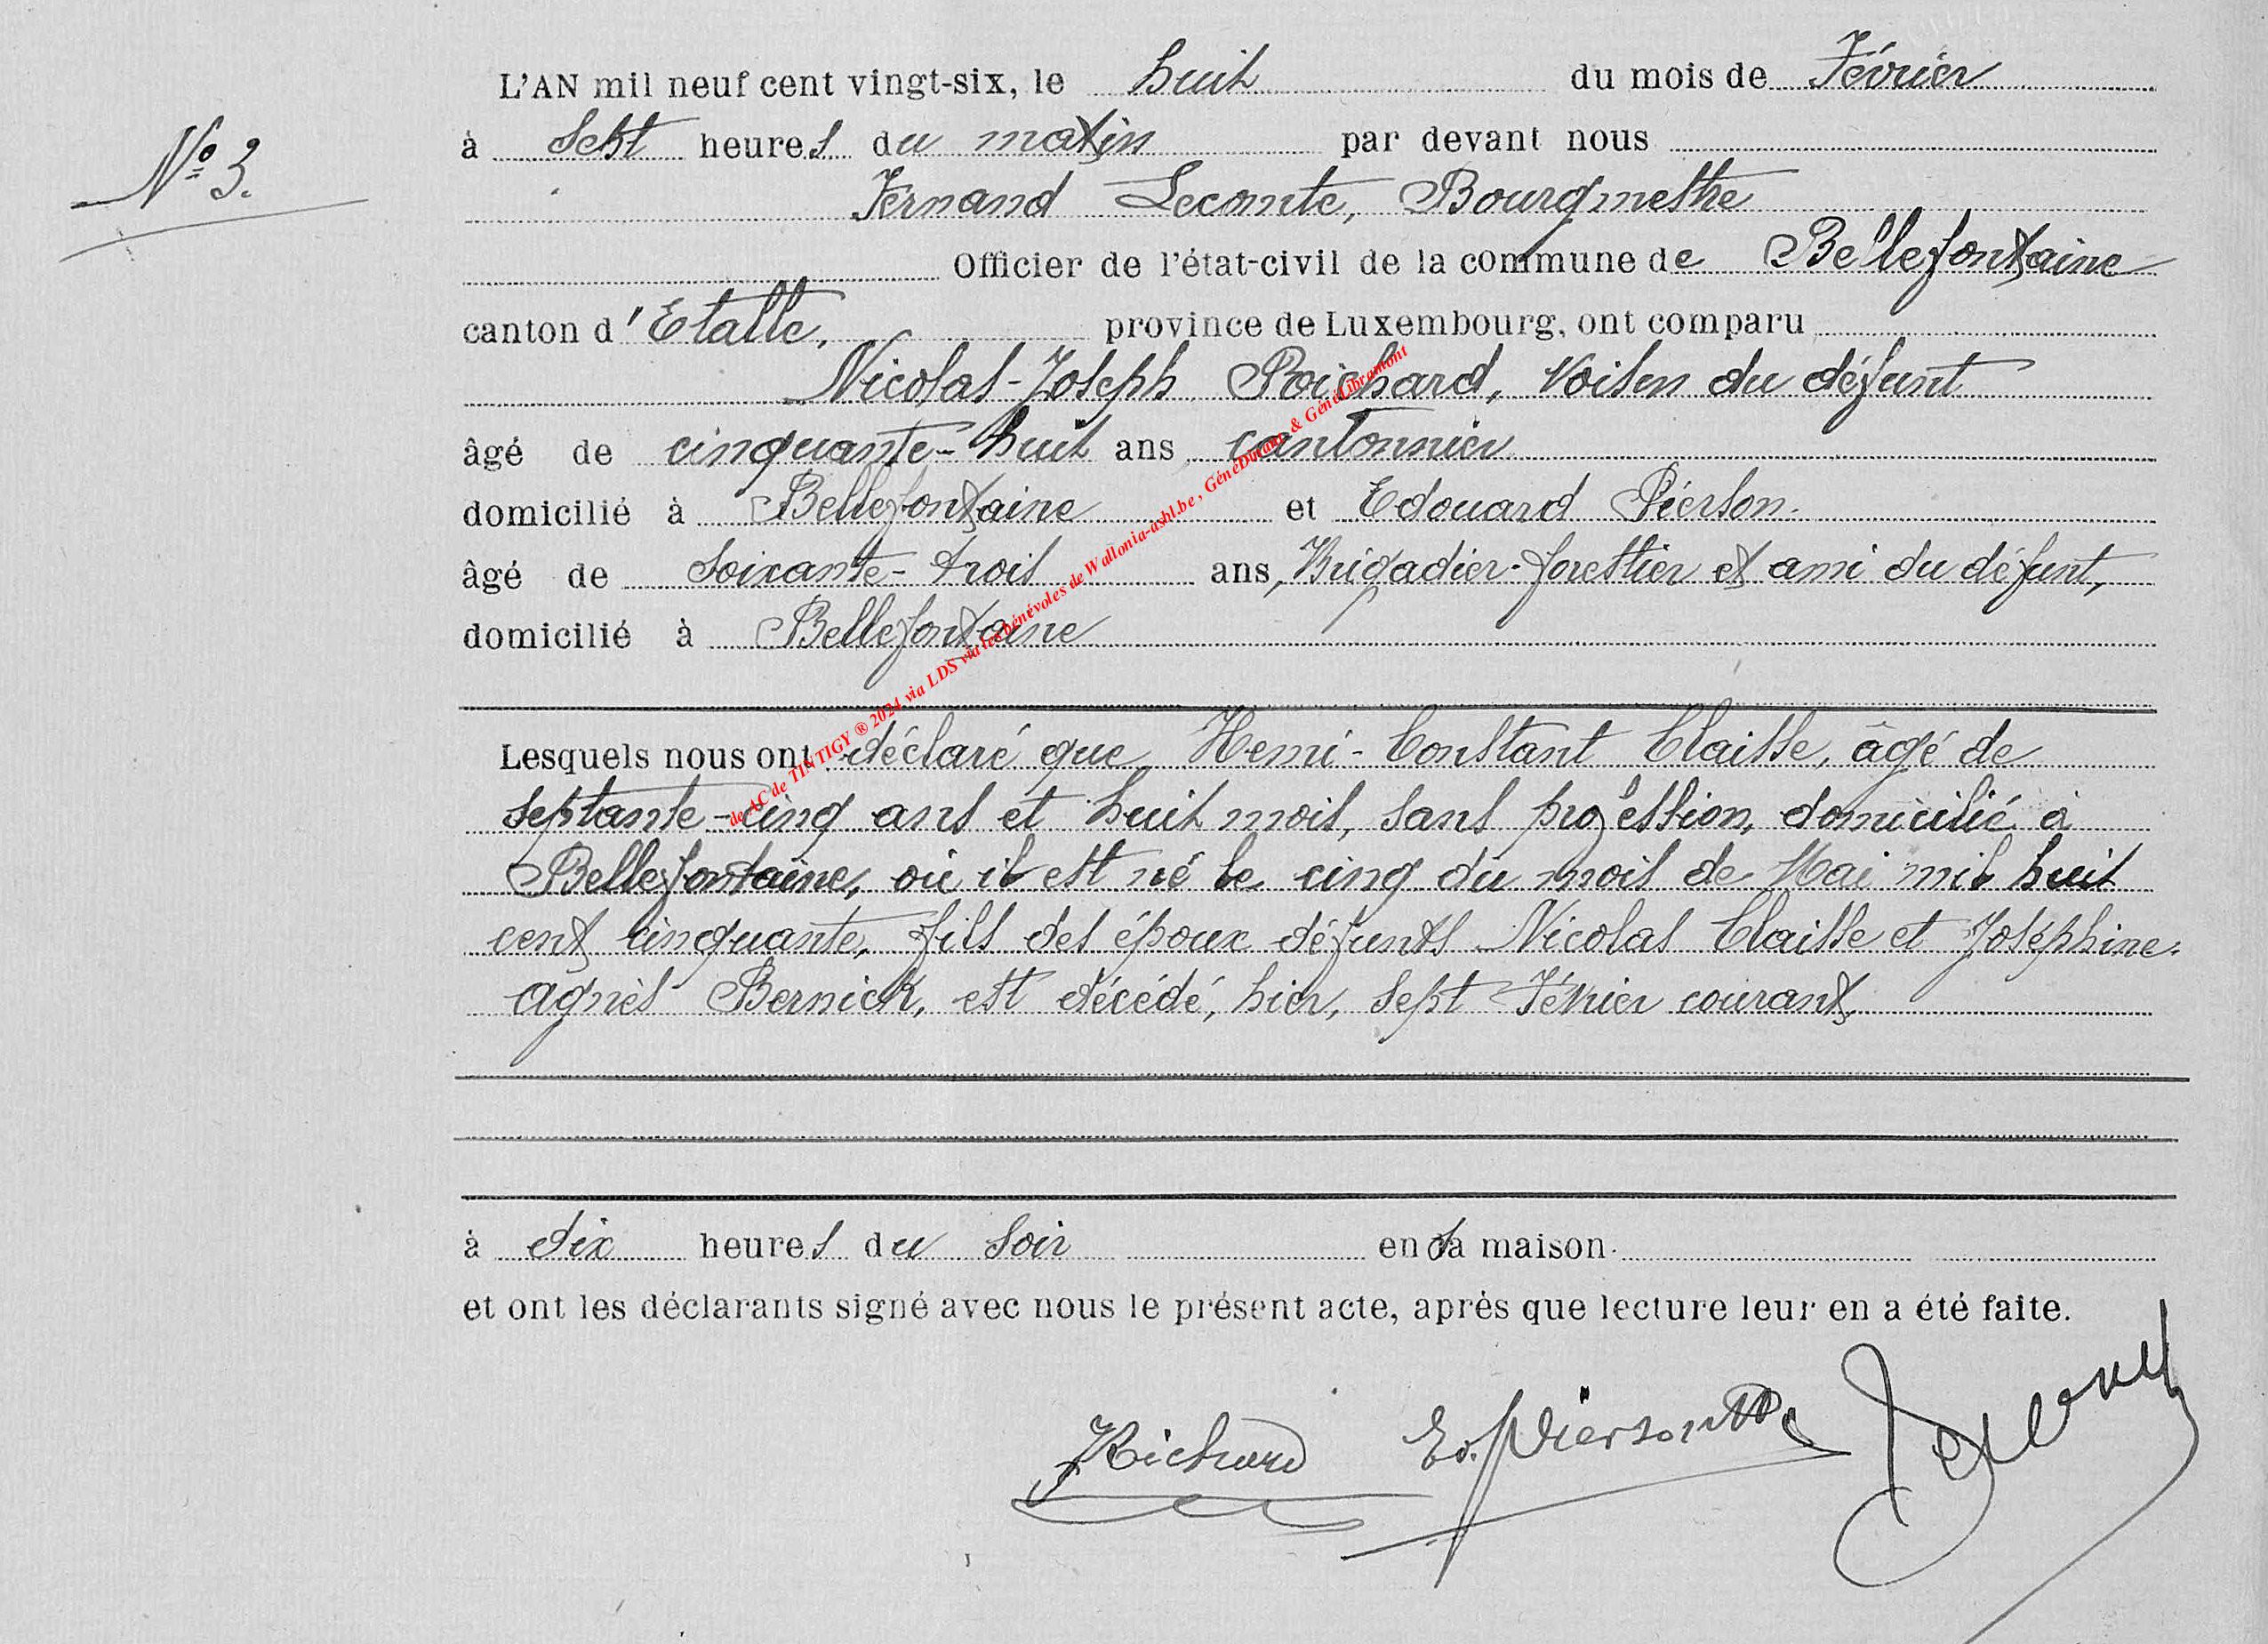 L'AN mil neuf cent vingt-six, le huit du mois de Février
N° 3.
à Sept heures du matin par devant nous
Fernand Lecomte, Bourgmestre
Officier de l'état-civil de la commune de Bellefontaine
canton d'Etalle, province de Luxembourg, ont comparu
Nicolas-Joseph Poichard, voisin du défunt
âgé de cinquante-huit ans cantonnier
domicilié à Bellefontaine et Edouard Pierson.
âgé de soixante-trois ans, Brigadier-forestier et ami du défunt,
domicilié à Bellefontaine
de AC de TINTIGY ® 2024 via LDS via les bénévoles de Wallonia-asbl.be, GénéDinant & GénéLibramont
Lesquels nous ont déclaré que Henri-Constant Claisse, âgé de
septante-cinq ans et huit mois, sans profession, domicilié à
Bellefontaine, où il est né le cinq du mois de Mai mil huit
cent cinquante, fils des époux défunts Nicolas Claisse et Joséphine-
agnès Bernick, est décédé, hier, sept Février courant,
à dix heures du soir en sa maison.
et ont les déclarants signé avec nous le présent acte, après que lecture leur en a été faite.
Ed. Pierson